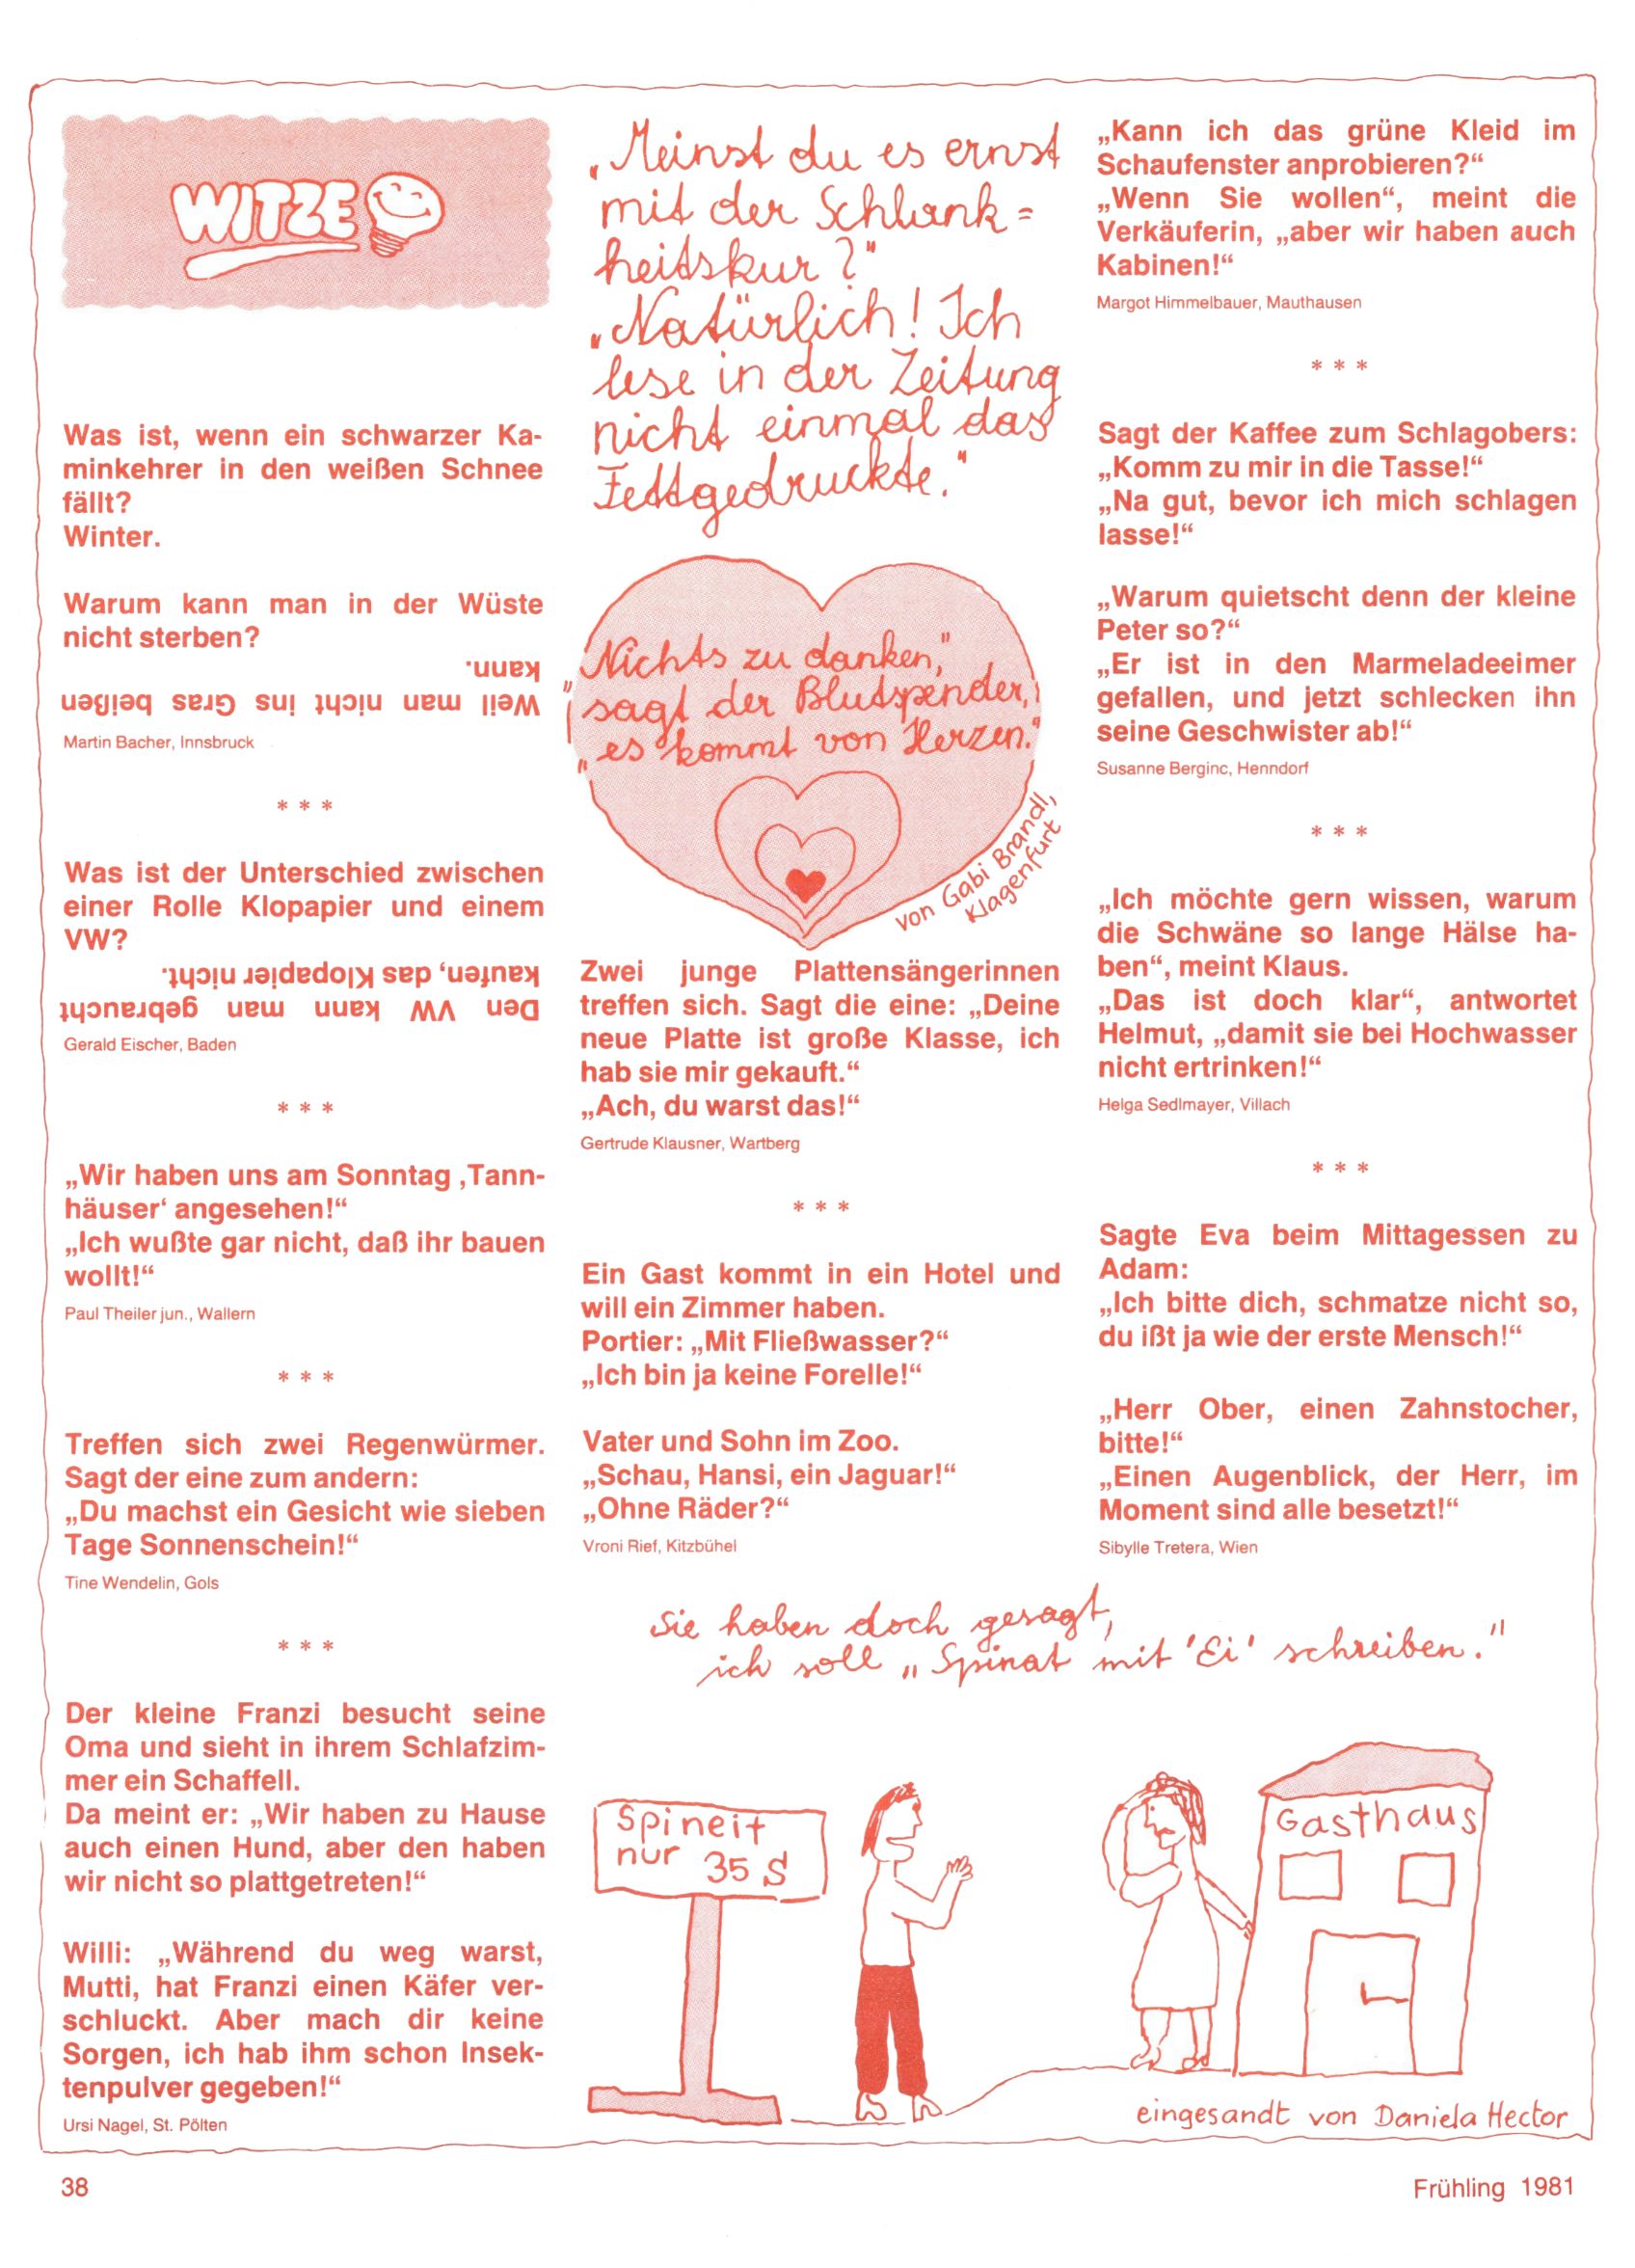 WITZE
Was ist, wenn ein schwarzer Ka-
minkehrer in den weißen Schnee
fällt?
Winter.
Warum kann man in der Wüste
nicht sterben?
Weil man nicht ins Gras beißen
kann.
Martin Bacher, Innsbruck
* * *
Was ist der Unterschied zwischen
einer Rolle Klopapier und einem
VW?
Den VW kann man gebraucht
kaufen, das Klopapier nicht.
Gerald Eischer, Baden
* * *
„Wir haben uns am Sonntag ‚Tann-
häuser‘ angesehen!“
„Ich wußte gar nicht, daß ihr bauen
wollt!“
Paul Theiler jun., Wallern
* * *
Treffen sich zwei Regenwürmer.
Sagt der eine zum andern:
„Du machst ein Gesicht wie sieben
Tage Sonnenschein!“
Tine Wendelin, Gols
* * *
Der kleine Franzi besucht seine
Oma und sieht in ihrem Schlafzim-
mer ein Schaffell.
Da meint er: „Wir haben zu Hause
auch einen Hund, aber den haben
wir nicht so plattgetreten!“
Willi: „Während du weg warst,
Mutti, hat Franzi einen Käfer ver-
schluckt. Aber mach dir keine
Sorgen, ich hab ihm schon Insek-
tenpulver gegeben!“
Ursi Nagel, St. Pölten
„Meinst du es ernst
mit der Schlank=
heitskur?"
„Natürlich! Ich
lese in der Zeitung
nicht einmal das
Fettgedruckte."
„Nichts zu danken,"
sagt der Blutspender,
„es kommt von Herzen."
von Gabi Brandl,
Klagenfurt
Zwei junge Plattensängerinnen
treffen sich. Sagt die eine: „Deine
neue Platte ist große Klasse, ich
hab sie mir gekauft.“
„Ach, du warst das!“
Gertrude Klausner, Wartberg
* * *
Ein Gast kommt in ein Hotel und
will ein Zimmer haben.
Portier: „Mit Fließwasser?“
„Ich bin ja keine Forelle!“
Vater und Sohn im Zoo.
„Schau, Hansi, ein Jaguar!“
„Ohne Räder?“
Vroni Rief, Kitzbühel
„Kann ich das grüne Kleid im
Schaufenster anprobieren?“
„Wenn Sie wollen“, meint die
Verkäuferin, „aber wir haben auch
Kabinen!“
Margot Himmelbauer, Mauthausen
* * *
Sagt der Kaffee zum Schlagobers:
„Komm zu mir in die Tasse!“
„Na gut, bevor ich mich schlagen
lasse!“
„Warum quietscht denn der kleine
Peter so?“
„Er ist in den Marmeladeeimer
gefallen, und jetzt schlecken ihn
seine Geschwister ab!“
Susanne Berginc, Henndorf
* * *
„Ich möchte gern wissen, warum
die Schwäne so lange Hälse ha-
ben“, meint Klaus.
„Das ist doch klar“, antwortet
Helmut, „damit sie bei Hochwasser
nicht ertrinken!“
Helga Sedlmayer, Villach
* * *
Sagte Eva beim Mittagessen zu
Adam:
„Ich bitte dich, schmatze nicht so,
du ißt ja wie der erste Mensch!“
„Herr Ober, einen Zahnstocher,
bitte!“
„Einen Augenblick, der Herr, im
Moment sind alle besetzt!“
Sibylle Tretera, Wien
Sie haben doch gesagt,
ich soll „Spinat mit 'Ei' schreiben."
Spineit
nur 35 S
Gasthaus
eingesandt von Daniela Hector
38
Frühling 1981